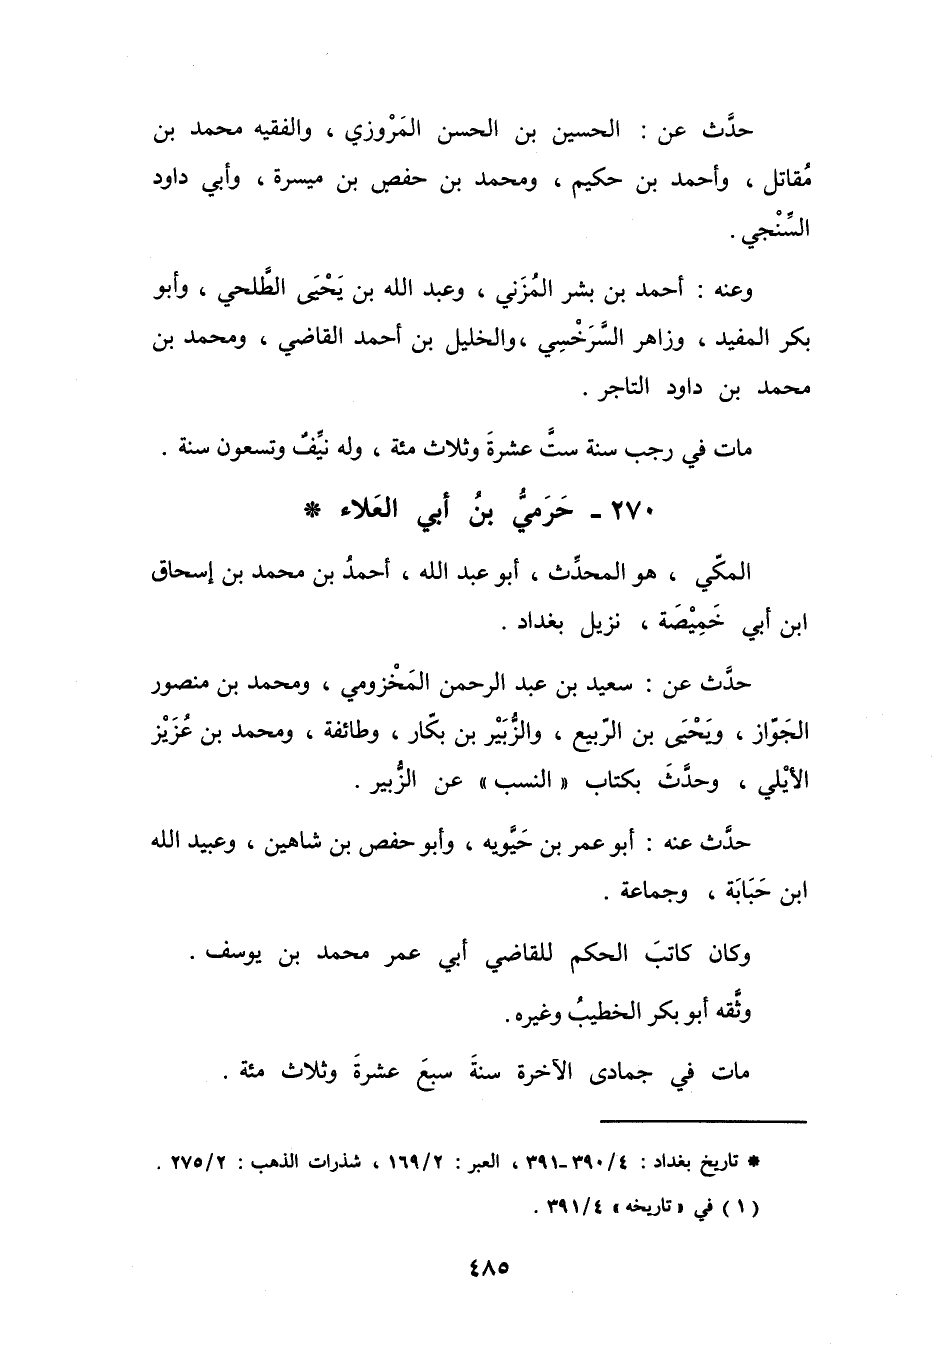 حدَّث عن : الحسين بن الحسن المَرْوزي ، والفقيه محمد بن
مُقاتل ، وأحمد بن حكيم ، ومحمد بن حفص بن ميسرة ، وأبي داود
السِّنْجي .
وعنه : أحمد بن بشر المُزَني ، وعبد الله بن يَحْيَى الطَّلحي ، وأبو
بكر المفيد ، وزاهر السَّرَخْسِي ،والخليل بن أحمد القاضي ، ومحمد بن
محمد بن داود التاجر .
مات في رجب سنة ستَّ عشرةَ وثلاث مئة ، وله نيِّفٌ وتسعون سنة .
٢٧٠ ـ حَرَميُّ بنُ أبي العَلاء *
المكّي ، هو المحدِّث ، أبو عبد الله ، أحمدُ بن محمد بن إسحاق
ابن أبي خَمِيْصَة ، نزيل بغداد .
حدَّث عن : سعيد بن عبد الرحمن المَخْزومي ، ومحمد بن منصور
الجَوّاز ، ويَحْيَى بن الرّبيع ، والزُّبَيْر بن بكّار ، وطائفة ، ومحمد بن عُزَيْز
الأيْلي ، وحدَّثَ بكتاب « النسب » عن الزُّبير .
حدَّث عنه : أبو عمر بن حَيَّويه ، وأبو حفص بن شاهين ، وعبيد الله
ابن حَبَابَة ، وجماعة .
وكان كاتبَ الحكم للقاضي أبي عمر محمد بن يوسف .
وثَّقه أبو بكر الخطيبُ وغيره .
مات في جمادى الآخرة سنةَ سبعَ عشرةَ وثلاث مئة .
* تاريخ بغداد : ٤/ ٣٩٠ـ٣٩١ ، العبر : ٢/ ١٦٩ ، شذرات الذهب : ٢/ ٢٧٥ .
( ١ ) في « تاريخه » ٤/ ٣٩١ .
٤٨٥